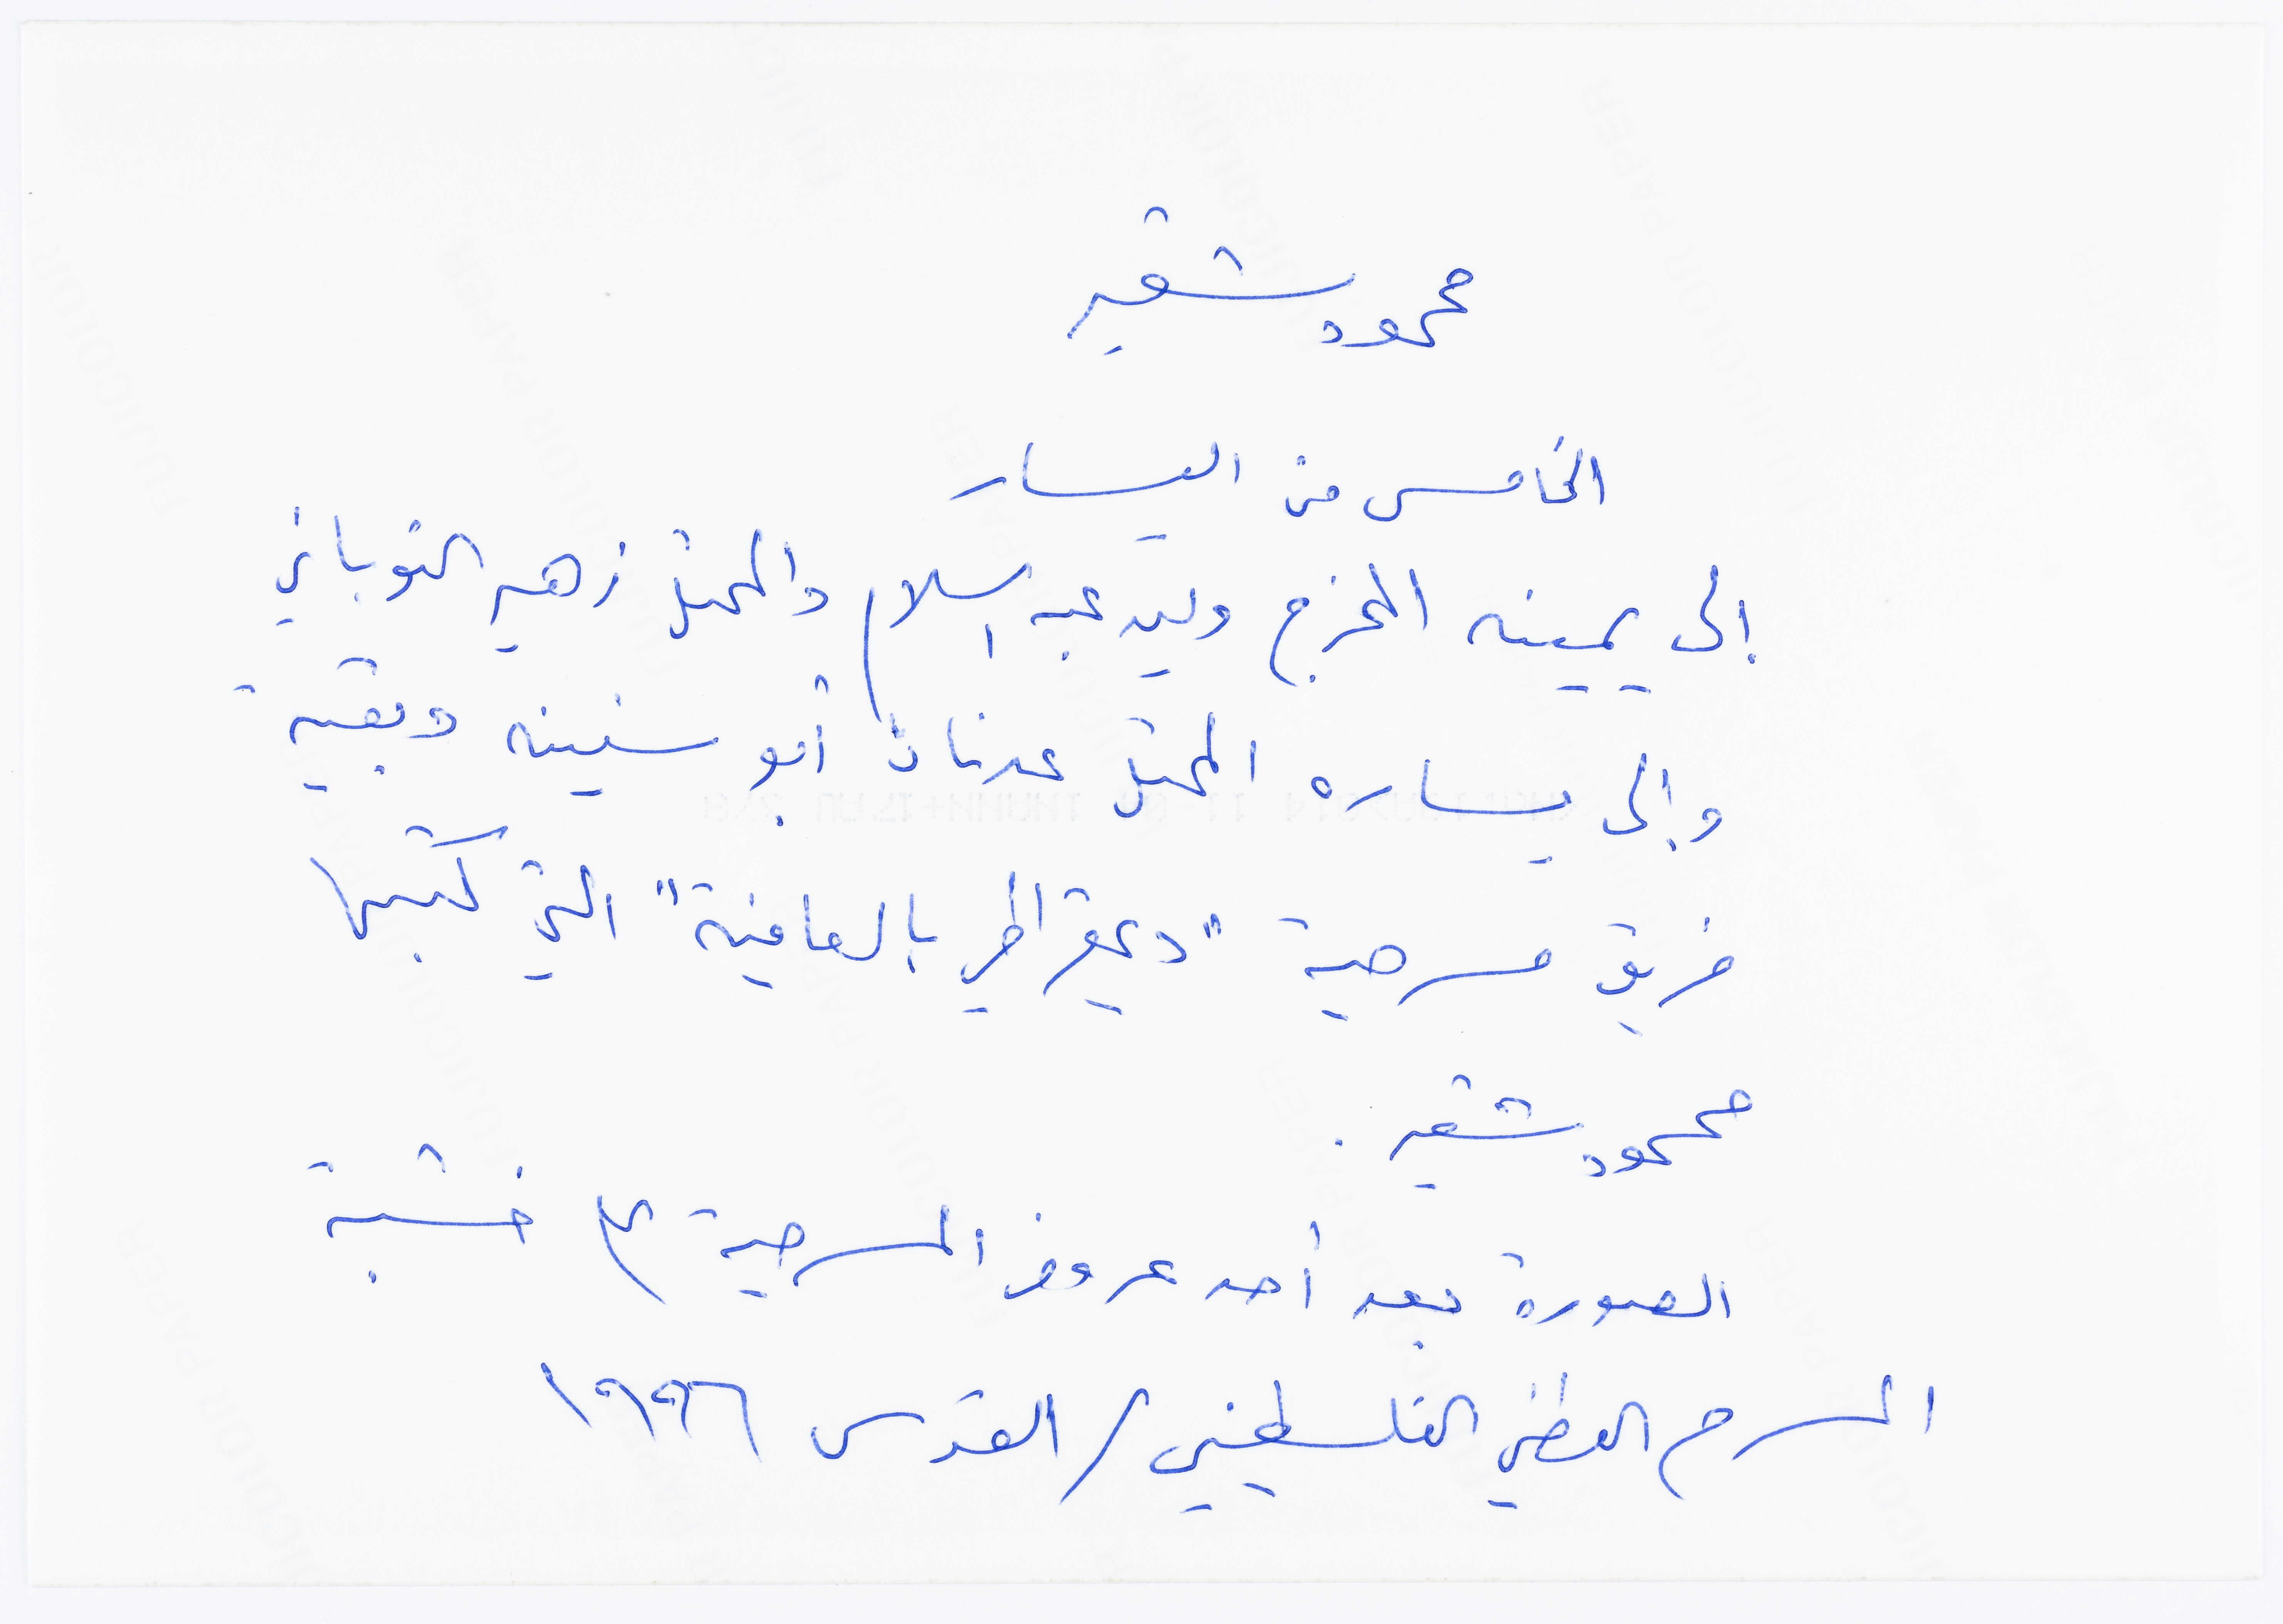 محمود شقير
الخامس من اليسار
إلى يمينه المخرج وليد عبد السلام والممثل زهير النوباني
وإلى يساره الممثل عدنان أبو سنينه وبقية
فريق مسرحية "ديمقراطي بالعافية" التي كتبها
محمود شقير .
الصورة بعد أحد عروض المسرحية على خشبة
المسرح الوطني الفلسطيني / القدس ١٩٩٦
FUJICOLOR PAPER